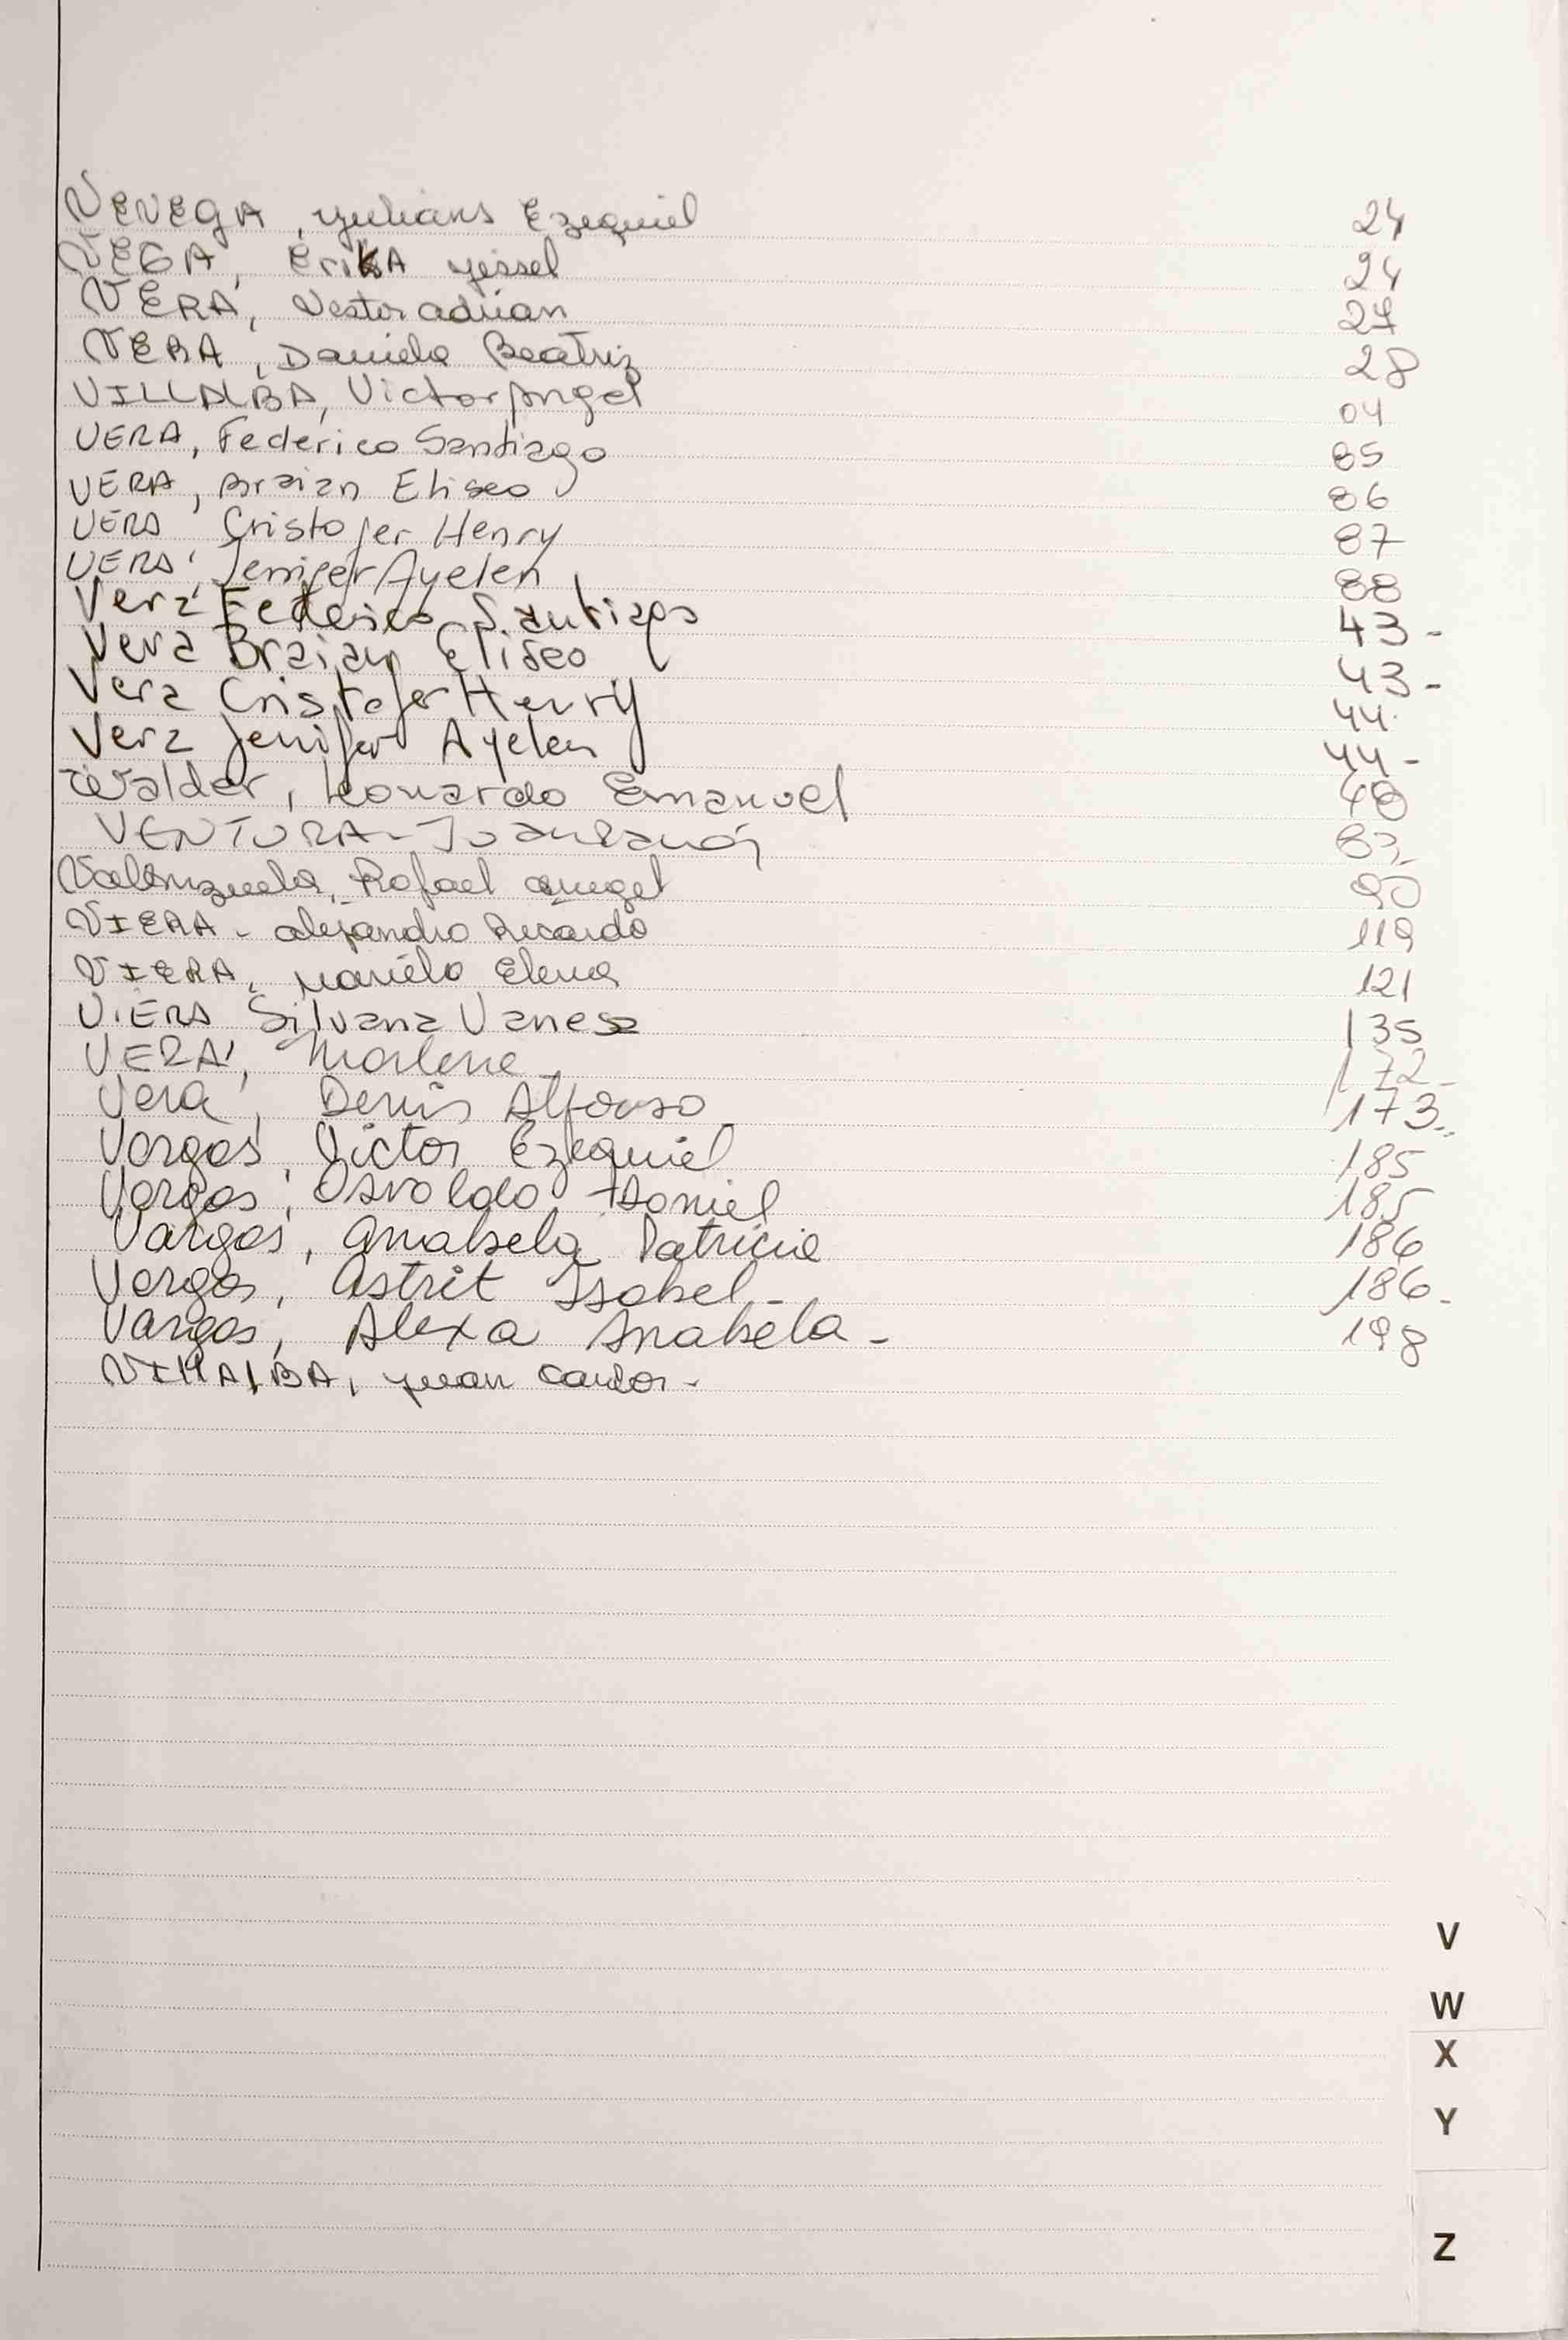 VENEGA, Yulians Ezequiel 24
VEGA, ErikA Yissel 24
VERA, Nestor adrian 27
VERA, Daniela Beatriz 28
VILLALBA, Victor Angel 04
VERA, Federico Santiago 85
VERA, Braian Eliseo 86
VERA Cristofer Henry 87
VERA, Jenifer Ayelen 88
Vera Federico Santiago 43-
Vera Braian Eliseo 43-
Vera Cristofer Henry 44
Vera Jenifer Ayelen 44-
Walder, Leonardo Emanuel 48
VENTURA-Juan Ramón
Valenzuela, Rafael angel 90
VIERA - alejandro Ricardo 119
VIERA, Mariela Elena 121
VIERA Silvana Vanesa 135
VERA, Marlene 172-
Vera, Denis Alfonso 173-
Vargas, Victor Ezequiel 185
Vargas, Osvaldo Daniel 185
Vargas, Anabela Patricia 186
Vargas, Astrit Isabel- 186-
Vargas, Alexa Anabela- 198
VillALBA, Juan Carlos-
V
W
X
Y
Z